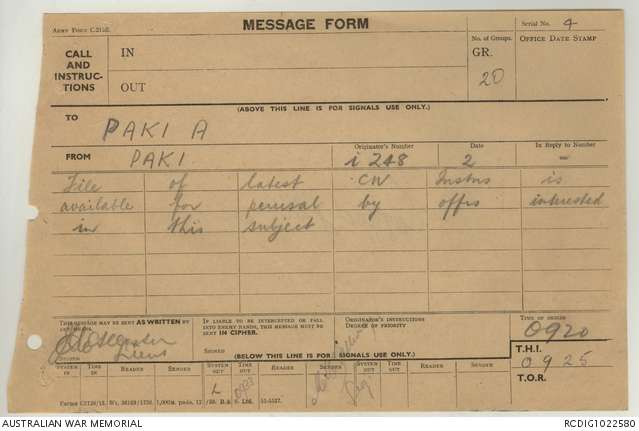 ARMY FORM C.2128.
MESSAGE FORM
Serial No. 4
CALL AND INSTRUC-TIONS
IN
OUT
No. of Groups.
GR.
20
OFFICE DATE STAMP
(ABOVE THIS LINE IS FOR SIGNALS USE ONLY.)
TO
PAKI A
FROM PAKI Originator's Number i 248 Date 2 In Reply to Number
File of latest CW Instns is
available for perusal by offrs interested
in this subject
THIS MESSAGE MAY BE SENT AS WRITTEN BY ANY MEANS.
IF LIABLE TO BE INTERCEPTED OR FALL INTO ENEMY HANDS, THIS MESSAGE MUST BE SENT IN CIPHER.
ORIGINATOR'S INSTRUCTIONS
DEGREE OF PRIORITY
TIME OF ORIGIN
0920
Lieut
SIGNED
SIGNED
(BELOW THIS LINE IS FOR SIGNALS USE ONLY.)
T.H.I.
0925
T.O.R.
SYSTEM IN TIME IN READER SENDER SYSTEM OUT TIME OUT READER SENDER SYSTEM OUT TIME OUT READER SENDER
L
AUSTRALIAN WAR MEMORIAL
RCDIG1022580